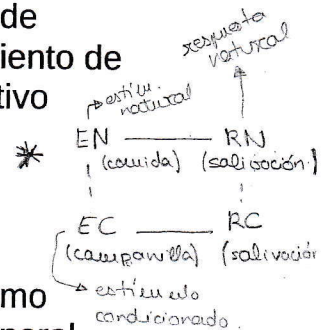 de
iento de
tivo
respuesta
natural
estím.
natural
* EN — RN
(comida) (salivación)
EC — RC
(campanilla) (salivación
estímulo
condicionado.
mo
neral